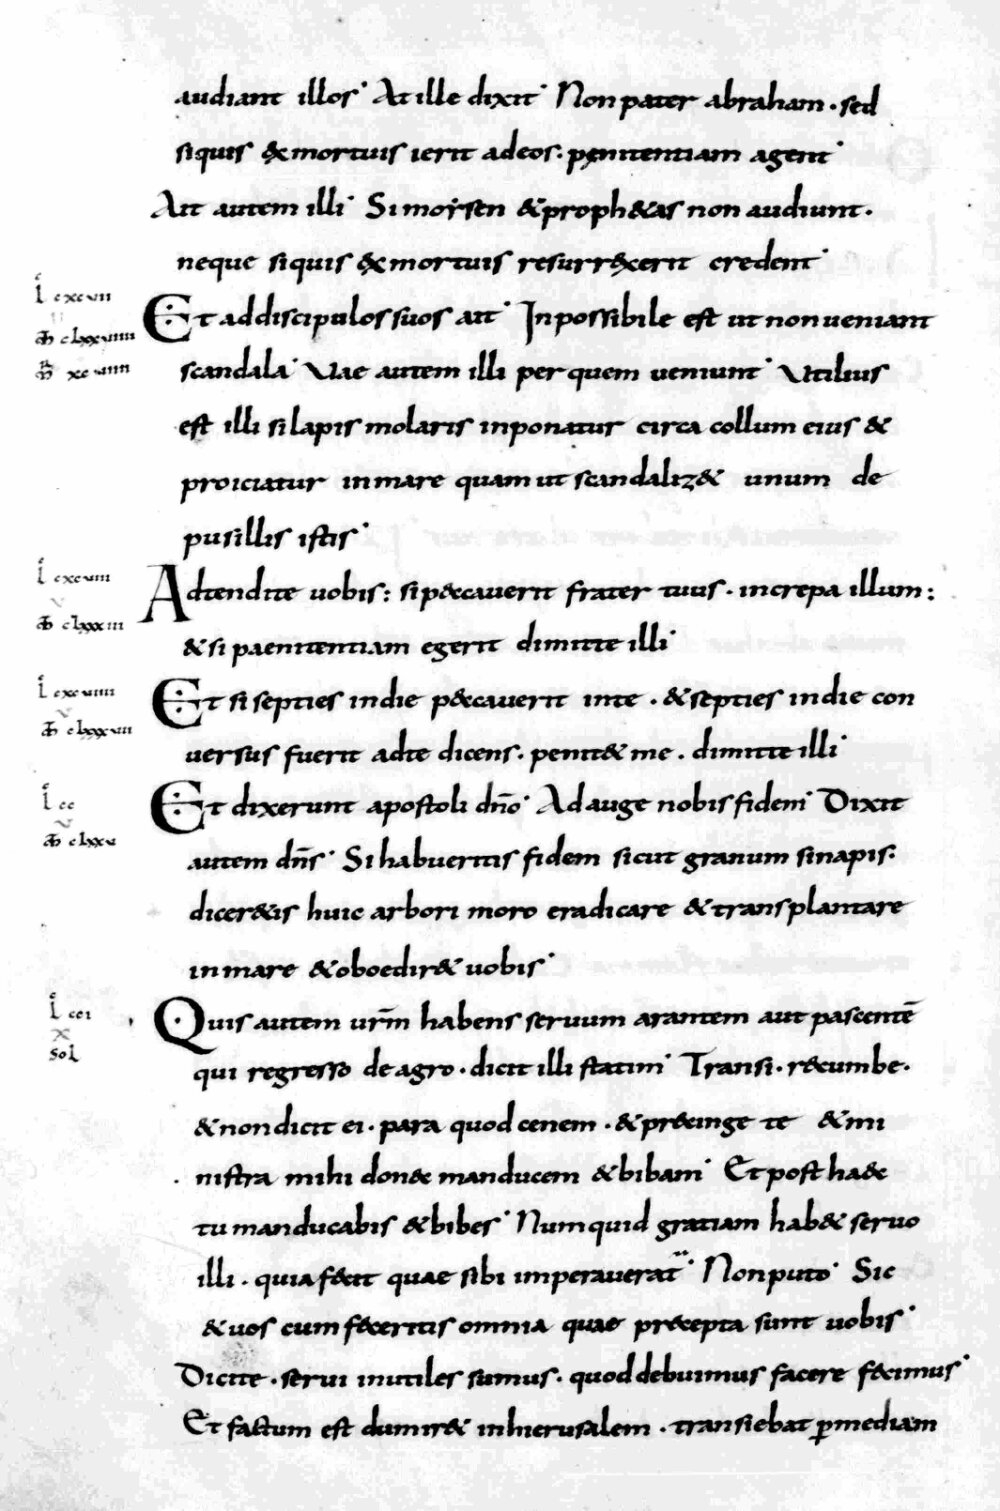 audiant illos· At ille dixit· Non pater abraham · sed
si quis &mortuis ierit ad eos : penitentiam agent·
Ait autem illi· Si moysen & proph&as non audiunt ·
neque si quis &mortuis resurr&xerit credent·
L cxcvii
Et ad discipulos suos ait· Inpossibile est ut non ueniant
scandala· Vae autem illi per quem ueniunt· Vtilius
xcviiii
est illi si lapis molaris inponatur circa collum eius &
proiciatur in mare quam ut scandaliz& unum de
pusillis istis·
L cxcviii
Adtendite uobis : si p&cauerit frater tuus · increpa illum :
clxxxiii
& si paenitentiam egerit dimitte illi·
L cxcviiii
Et si septies in die p&cauerit in te · & septies in die con
uersus fuerit ad te dicens · penit& me · dimitte illi·
L cc
Et dixerunt apostoli dn̄o· Adauge nobis fidem· Dixit
autem dn̄s· Si habueritis fidem sicut granum sinapis :
dicer&is huic arbori moro eradicare & transplantare
in mare & oboedir& uobis·
L cci
Quis autem urm̄ habens seruum arantem aut pascentē
X
sol
qui regresso de agro · dicit illi statim· Transi · r&cumbe ·
& non dicit ei · para quod cenem · & pr&cinge te & mi
nistra mihi done& manducem & bibam· Et post ha&c
tu manducabis & bibes· Numquid gratiam hab& seruo
illi · quia f&cit quae sibi imperauerat· Non puto· Sic
& uos cum f&ceritis omnia quae pr&cepta sunt uobis·
Dicite · serui inutiles sumus · quod debuimus facere f&cimus·
Et factum est dum ir& in hierusalem · transiebat ꝑ mediam